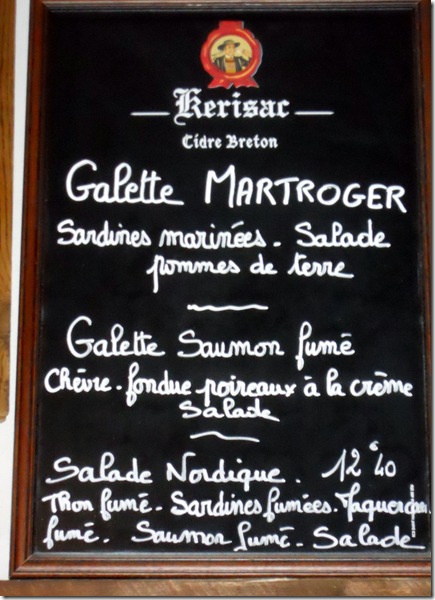 Kerisac
Cidre Breton
Galette MARTROGER
Sardines marinées - Salade
pommes de terre
Galette Saumon fumé
Chèvre - fondue poireaux à la crème
Salade
Salade Nordique. 12€40
Thon fumé - Sardines fumées -
fumé. Saumon fumé - Salade